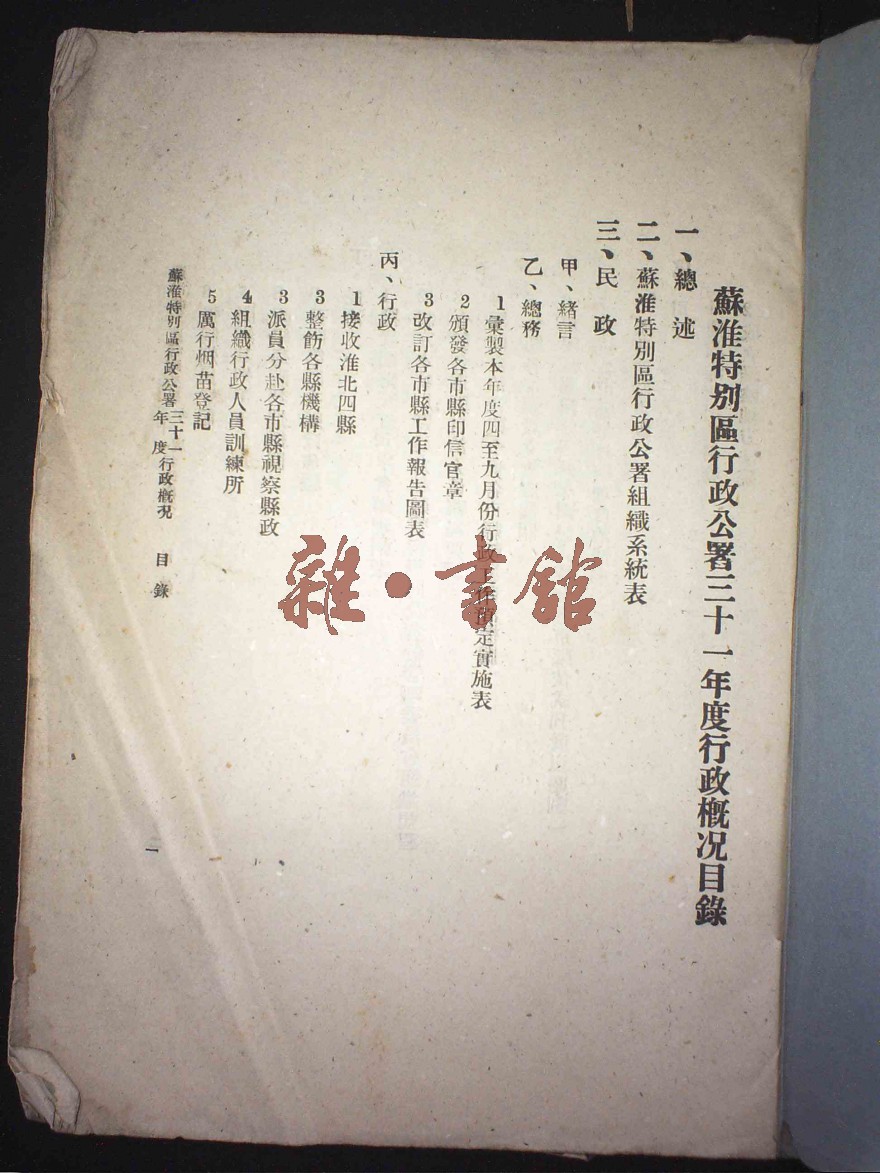 蘇淮特別區行政公署三十一年度行政概况目錄
一、總述
二、蘇淮特別區行政公署組織系統表
三、民政
甲、緒言
乙、總務
1彙製本年度四至九月份行政工作預定實施表
2頒發各市縣印信官章
3改訂各市縣工作報告圖表
丙、行政
1接收淮北四縣
3整飭各縣機構
3派員分赴各市縣視察縣政
4組織行政人員訓練所
5厲行烟苗登記
蘇淮特別區行政公署三十一年度行政概况 目錄
一
雜·書館